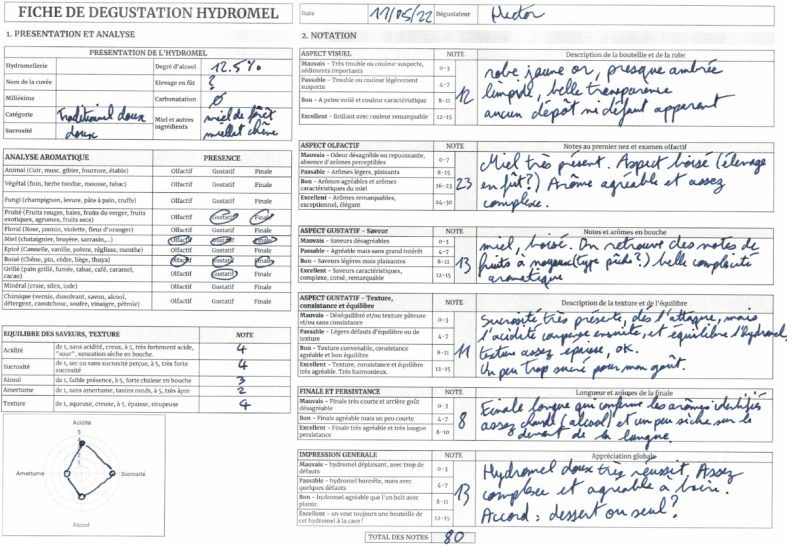 FICHE DE DEGUSTATION HYDROMEL
Date 17/05/22 Dégustateur Hector
1. PRESENTATION ET ANALYSE
PRESENTATION DE L'HYDROMEL
Hydromellerie Degré d'alcool 12.5%
Nom de la cuvée Elevage en fût ?
Millésime Carbonatation Ø
Catégorie Traditionnel doux Miel et autres ingrédients miel de forêt
Sucrosité doux miellat chêne
ANALYSE AROMATIQUE PRESENCE
Animal (Cuir, musc, gibier, fourrure, étable) Olfactif Gustatif Finale
Végétal (foin, herbe tondue, mousse, tabac) Olfactif Gustatif Finale
Fungi (champignon, levure, pâte à pain, truffe) Olfactif Gustatif Finale
Fruité (Fruits rouges, baies, fruits du verger, fruits exotiques, agrumes, fruits secs) Olfactif Gustatif Finale
Floral (Rose, jasmin, violette, fleur d'oranger) Olfactif Gustatif Finale
Miel (chataignier, bruyère, sarrasin,...) Olfactif Gustatif Finale
Epicé (Cannelle, vanille, poivre, réglisse, menthe) Olfactif Gustatif Finale
Boisé (Chêne, pin, cèdre, liège, thuya) Olfactif Gustatif Finale
Grillé (pain grillé, fumée, tabac, café, caramel, cacao) Olfactif Gustatif Finale
Minéral (craie, silex, iode) Olfactif Gustatif Finale
Chimique (vernis, dissolvant, savon, alcool, détergent, caoutchouc, soufre, vinaigre, pétrole) Olfactif Gustatif Finale
EQUILIBRE DES SAVEURS, TEXTURE NOTE
Acidité de 1, sans acidité, creux, à 5, très fortement acide, "sour", sensation sèche en bouche. 4
Sucrosité de 1, sec ou sans sucrosité perçue, à 5, très forte sucrosité 4
Alcool de 1, faible présence, à 5, forte chaleur en bouche 3
Amertume de 1, sans amertume, tanins ronds, à 5, très âpre 2
Texture de 1, aqueuse, creuse, à 5, épaisse, sirupeuse 4
Acidité
5
Amertume Sucrosité
Alcool
2. NOTATION
ASPECT VISUEL NOTE Description de la bouteille et de la robe
Mauvais - Très trouble ou couleur suspecte, sédiments importants 0-3
Passable - Trouble ou couleur légèrement suspecte 4-7
Bon - A peine voilé et couleur caractéristique 8-11
Excellent - Brillant avec couleur remarquable 12-15
12
robe jaune or, presque ambrée
limpide, belle transparence
aucun dépôt ni défaut apparent
ASPECT OLFACTIF NOTE Notes au premier nez et examen olfactif
Mauvais - Odeur désagréable ou repoussante, absence d'arômes perceptibles 0-7
Passable - Arômes légers, plaisants 8-15
Bon - Arômes agréables et arômes caractéristiques du miel 16-23
Excellent - Arômes remarquables, exceptionnel, élégant 24-30
23
Miel très présent. Aspect boisé (élevage
en fût?) Arôme agréable et assez
complexe.
ASPECT GUSTATIF - Saveur NOTE Notes et arômes en bouche
Mauvais - Saveurs désagréables 0-3
Passable - Agréable mais sans grand intérêt 4-7
Bon - Saveurs légères mais plaisantes 8-11
Excellent - Saveurs caractéristiques, complexe, corsé, remarquable 12-15
13
miel, boisé. On retrouve des notes de
fruits à noyaux (type pêche?) belle complexité
aromatique
ASPECT GUSTATIF - Texture, consistance et équilibre NOTE Description de la texture et de l'équilibre
Mauvais - Déséquilibré et/ou texture pâteuse et/ou sans consistance 0-3
Passable - Légers défauts d'équilibre ou de texture 4-7
Bon - Texture convenable, consistance agréable et bon équilibre 8-11
Excellent - Texture, consistance et équilibre très agréable. Très harmonieux. 12-15
11
Sucrosité très présente, dès l'attaque, mais
l'acidité compense ensuite, et équilibre l'hydromel
texture assez épaisse, ok.
Un peu trop sucré pour mon goût.
FINALE ET PERSISTANCE NOTE Longueur et arômes de la finale
Mauvais - Finale très courte et arrière goût désagréable 0-3
Bon - Finale agréable mais un peu courte 4-7
Excellent - Finale très agréable et très longue persistance 8-10
8
Finale longue qui confirme les arômes identifiés
assez chaude (alcool) et un peu sèche sur le
devant de la langue.
IMPRESSION GENERALE NOTE Appréciation globale
Mauvais - hydromel déplaisant, avec trop de défauts 0-3
Passable - hydromel honnête, mais avec quelques défauts 4-7
Bon - hydromel agréable que l'on boit avec plaisir. 8-11
Excellent - on veut toujours une bouteille de cet hydromel à la cave! 12-15
13
Hydromel doux très réussit. Assez
complexe et agréable à boire.
Accord : dessert ou seul?
TOTAL DES NOTES 80